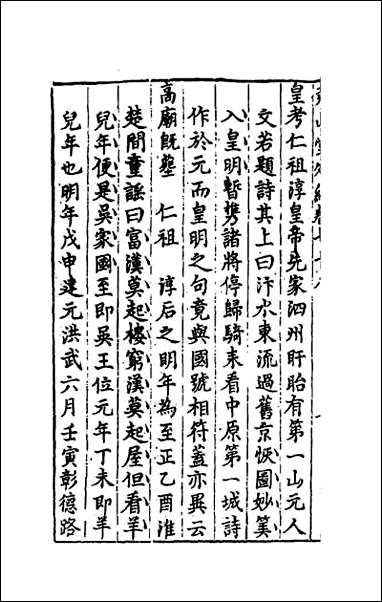 堯山堂外紀卷七十八
皇考仁祖淳皇帝先家泗州盱眙有第一山元人
文若題詩其上曰汴水東流過舊京恢圖妙筭
入皇明暫携諸將停歸騎來看中原第一城詩
作於元而皇明之句竟與國號相符蓋亦異云
高廟既塟 仁祖 淳后之明年為至正乙酉淮
楚間童謠曰富漢莫起樓窮漢莫起屋但看羊
兒年便是吳家國至即吳王位元年丁未即羊
兒年也明年戊申建元洪武六月壬寅彰德路